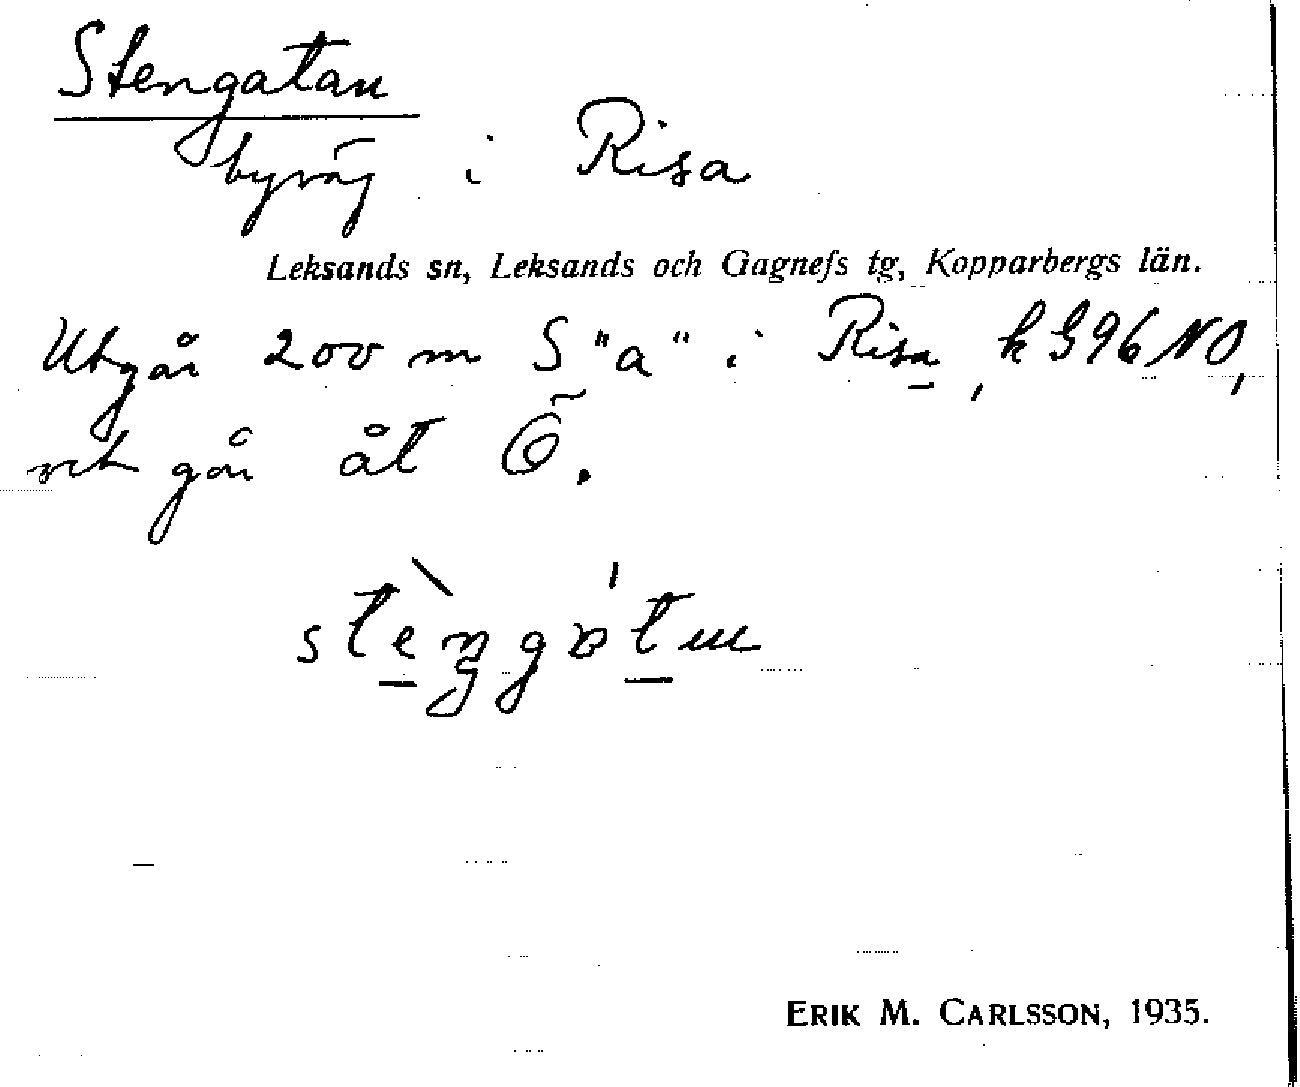 Stengatan
byväg i Risa
Leksands sn, Leksands och Gagnefs tg, Kopparbergs län.
Utgår 200 m S "a" i Risa, k 396 NO,
och går åt Ö.
ERIK M. CARLSSON, 1935.